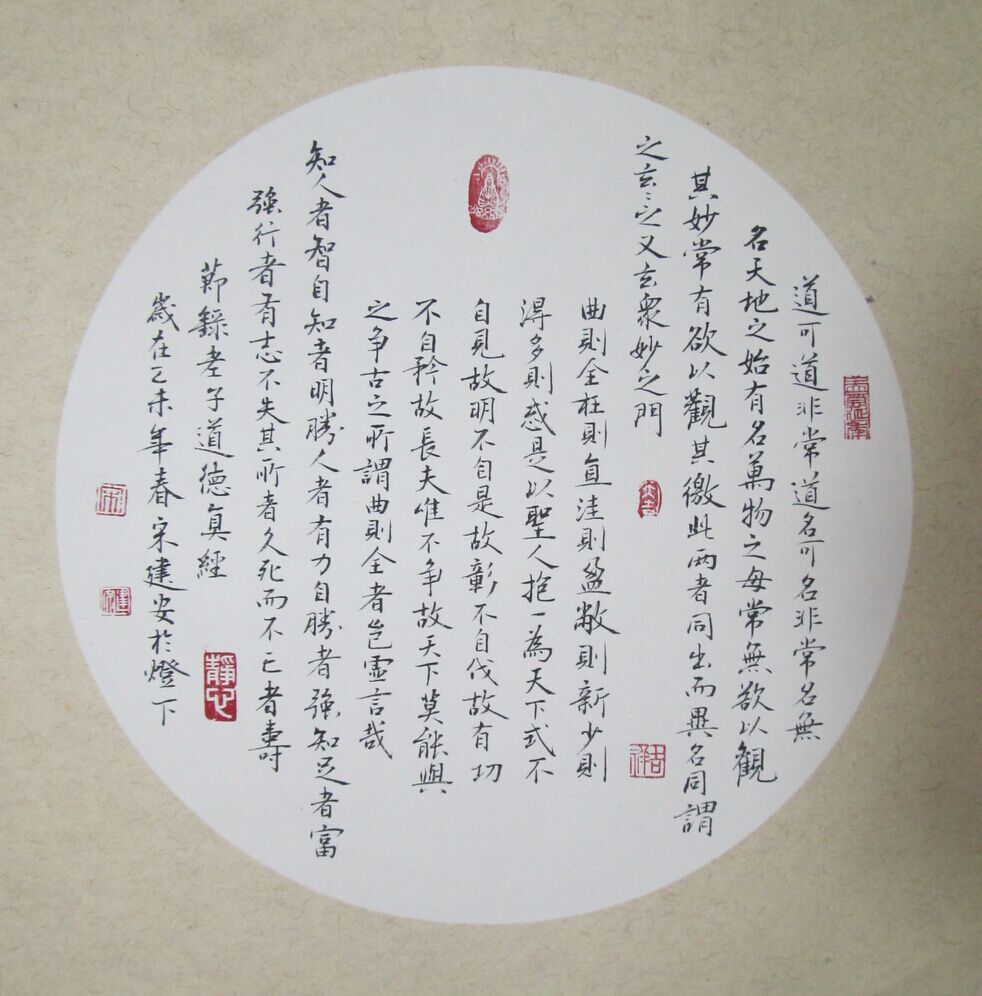 道可道非常道名可名非常名無
名天地之始有名萬物之母常無欲以觀
其妙常有欲以觀其徼此兩者同出而異名同謂
之玄〻之又玄衆妙之門
曲則全枉則直洼則盈敝則新少則
得多則惑是以聖人抱一為天下式不
自見故明不自是故彰不自伐故有功
不自矜故長夫唯不争故天下莫能與
之争古之所謂曲則全者豈虛言哉
知人者智自知者明勝人者有力自勝者強知足者富
強行者有志不失其所者久死而不亡者壽
節錄老子道德真經
歲在乙未年春宋建安於燈下
靜心